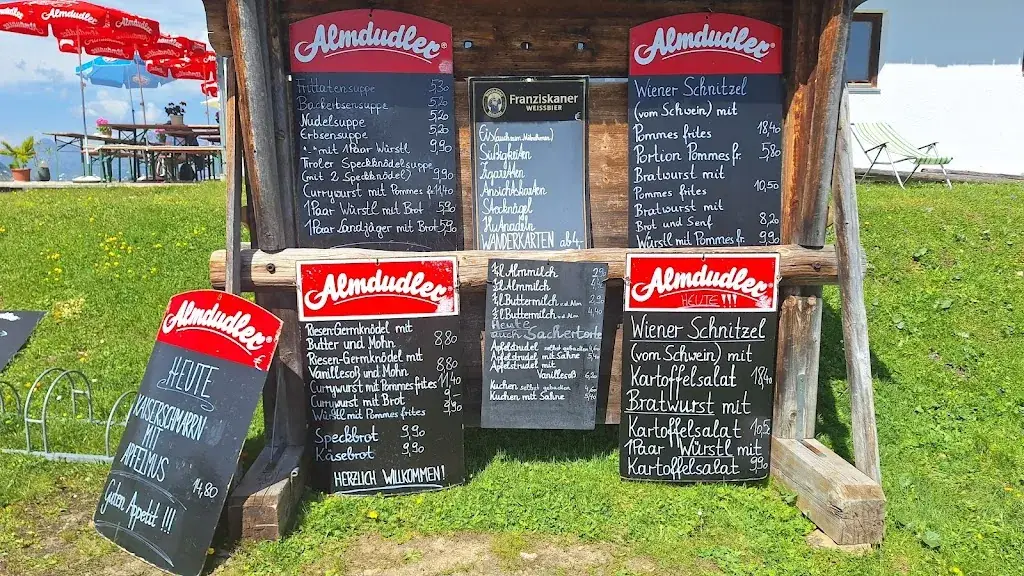 Almdudler
Frittatensuppe 5,30
Backerbsensuppe 5,20
Nudelsuppe 5,20
Erbsensuppe 5,20
" - " mit 1 Paar Würstl 9,90
Tiroler Speckknödelsuppe
(mit 2 Speckknödel) 9,90
Currywurst mit Pommes fr. 11,40
1 Paar Würstl mit Brot 5,90
1 Paar Landjäger mit Brot 5,90
Franziskaner
WEISSBIER
Eis (auch zum Mitnehmen)
Süßigkeiten
Zigaretten
Ansichtskarten
Stocknägel
Hutnadeln
WANDERKARTEN ab 4,-
Almdudler
Wiener Schnitzel
(vom Schwein) mit
Pommes frites 18,40
Portion Pommes fr. 5,80
Bratwurst mit
Pommes frites 10,50
Bratwurst mit
Brot und Senf 8,20
Würstl mit Pommes fr. 9,90
Almdudler
HEUTE
KAISERSCHMARRN
MIT
APFELMUS
14,80
Guten Appetit !!!
Almdudler
Riesen Germknödel mit
Butter und Mohn 8,80
Riesen-Germknödel mit
Vanillesoß und Mohn 8,80
Currywurst mit Pommes frites 11,40
Currywurst mit Brot
Würstl mit Pommes frites 9,90
Speckbrot 9,90
Käsebrot 9,90
HERZLICH WILLKOMMEN!
Almmilch
Almmilch
Buttermilch v.d. Alm
Buttermilch v.d. Alm 4,40
Heute
auch Sachertorte
Apfelstrudel selbst gebacken
Apfelstrudel mit Sahne
Apfelstrudel mit
Vanillesoß 6,20
Kuchen selbst gebacken
Kuchen mit Sahne 5,40
Almdudler
HEUTE !!!
Wiener Schnitzel
(vom Schwein) mit
Kartoffelsalat 18,40
Bratwurst mit
Kartoffelsalat 10,5
1 Paar Würstl mit
Kartoffelsalat 9,90